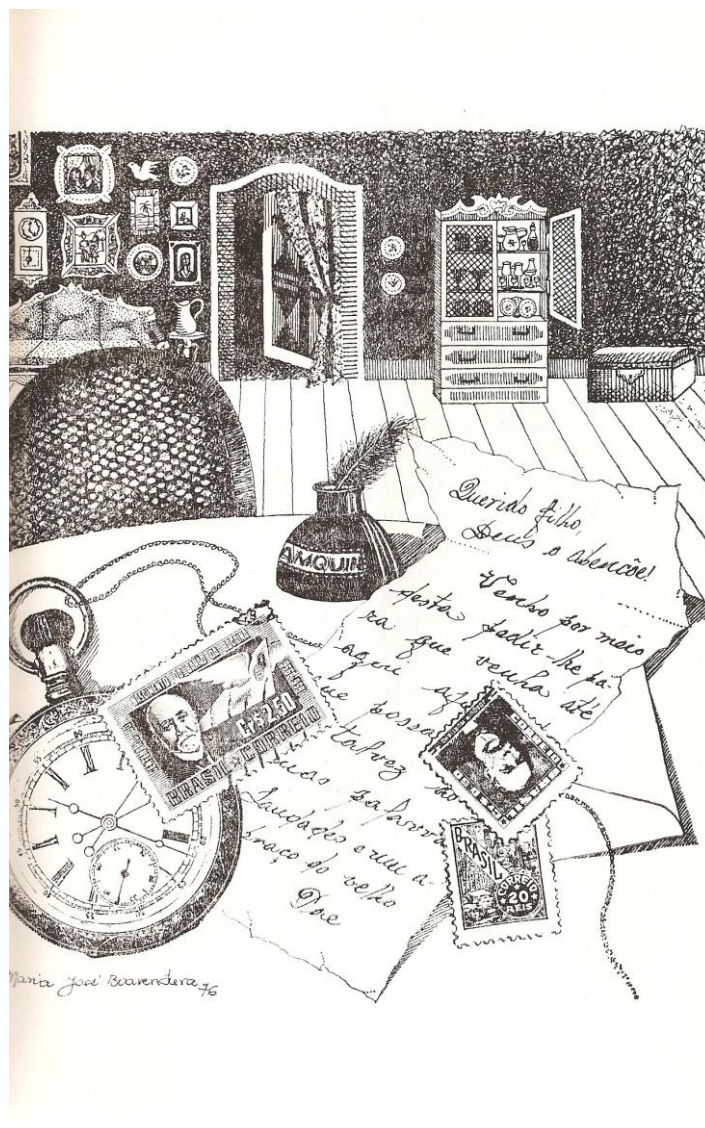 AMQUIN
Querido filho,
Deus o abençôe!
Venho por meio
desta pedir-lhe pa-
ra que venha até
aqui
que possa
talvez
suas palavras
Saudades e um a-
braço do velho
Pae
CR$ 2,50
BRASIL CORREIO
BRASIL
CORREIO
20
REIS
Maria José Boaventura 76